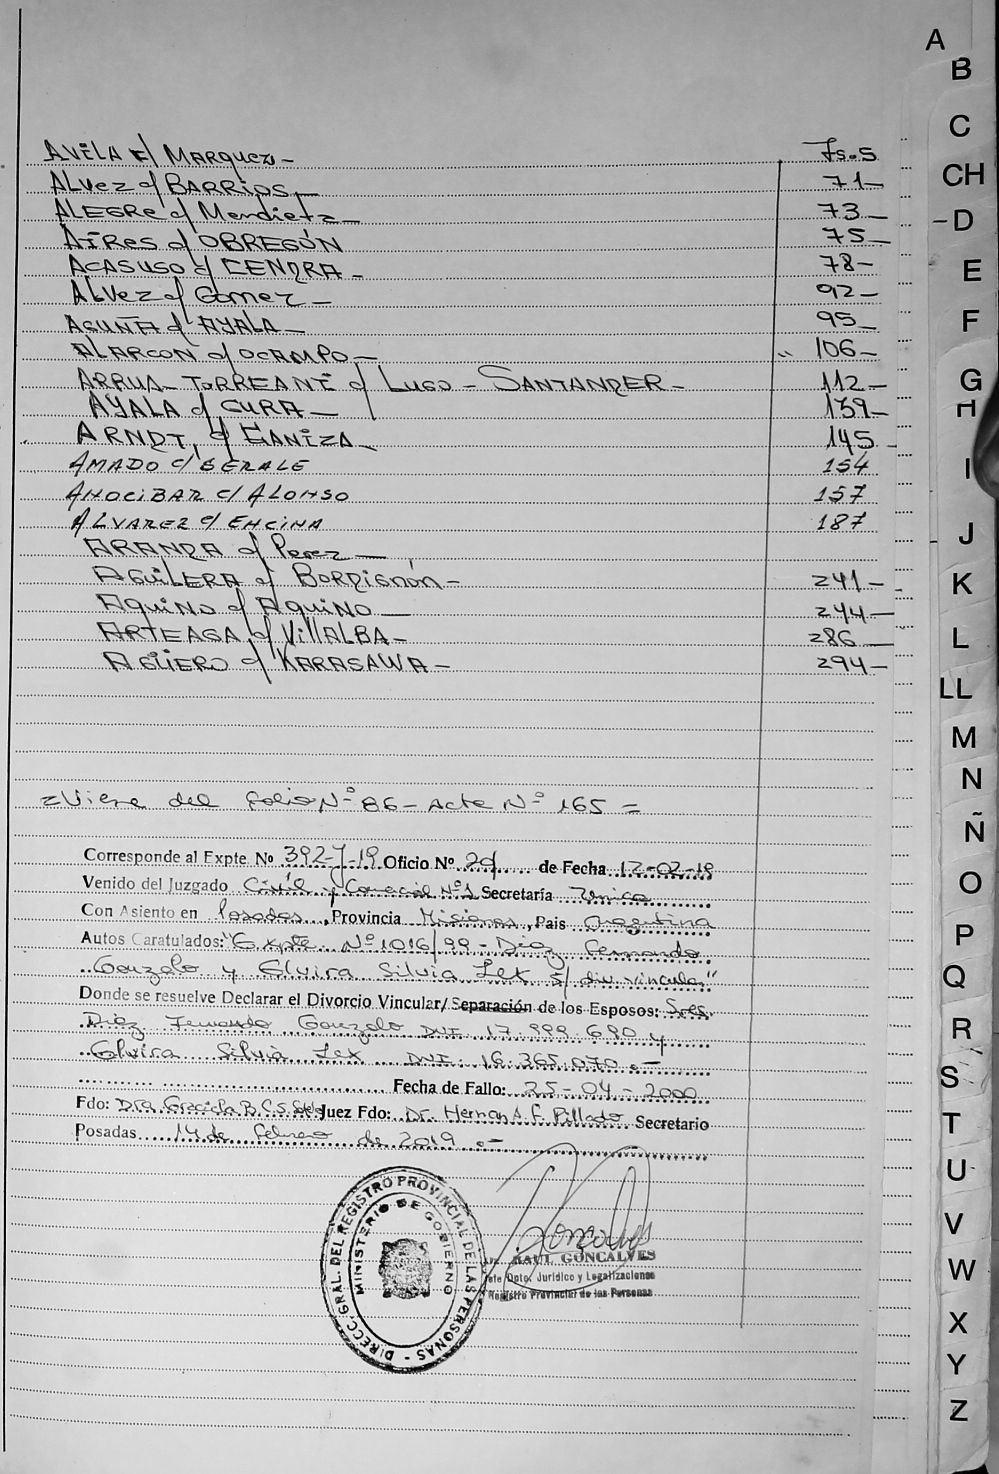 AVILA c/ MARQUEZ - Fs. 5
ALVEZ c/ BARRIOS - 71-
ALEGRE c/ Mendieta - 73-
AIRES c/ OBREGÓN 75-
ACASUSO c/ CENDRA - 78-
ALVEZ c/ Gomez - 92-
ACUÑA c/ AYALA - 95-
ALARCON c/ OCAMPO - " 106-
ARRUA - TORREANI c/ LUGO - SANTANDER - 112-
AYALA c/ CURA - 139-
ARNDT, c/ GANIZA - 145-
AMADO c/ BERALE 154
ANOCIBAR c/ ALONSO 157
ALVAREZ c/ ENCINA 187
ARANDA c/ Perez -
AGUILERA c/ BORDIGNÓN - 241-
AQUINO c/ AQUINO - 244-
ARTEAGA c/ VILLALBA - 286-
AGÜERO c/ KARASAWA - 294-
= Viene del folio Nº 86 - Acta Nº 165 =
Corresponde al Expte. Nº 392-J-19 Oficio Nº 29 de Fecha 12-02-19
Venido del Juzgado Civil y Comercial Nº1 Secretaría Unica
Con Asiento en Posadas, Provincia Misiones, Pais Argentina
Autos Caratulados: "Expte Nº 1016/99 - Diez Fernando
Gonzalo y Elvira Silvia Lex s/ div. vincular"
Donde se resuelve Declarar el Divorcio Vincular/ Separación de los Esposos: Sres.
Diez Fernando Gonzalo DNI 17.999.690 y
Elvira Silvia Lex DNI. 16.365.070.=
Fecha de Fallo: 25-04-2000
Fdo: Dra. Graciela R. C. S. Juez Fdo: Dr. Hernan A. F. Pillado Secretario
Posadas 14 de febrero de 2019.=
DIRECC. GRAL. DEL REGISTRO PROVINCIAL DE LAS PERSONAS -
MINISTERIO DE GOBIERNO
RAUL GONCALVES
Jefe Dpto. Jurídico y Legalizaciones
Registro Provincial de las Personas
A
B
C
CH
D
E
F
G
H
I
J
K
L
LL
M
N
Ñ
O
P
Q
R
S
T
U
V
W
X
Y
Z